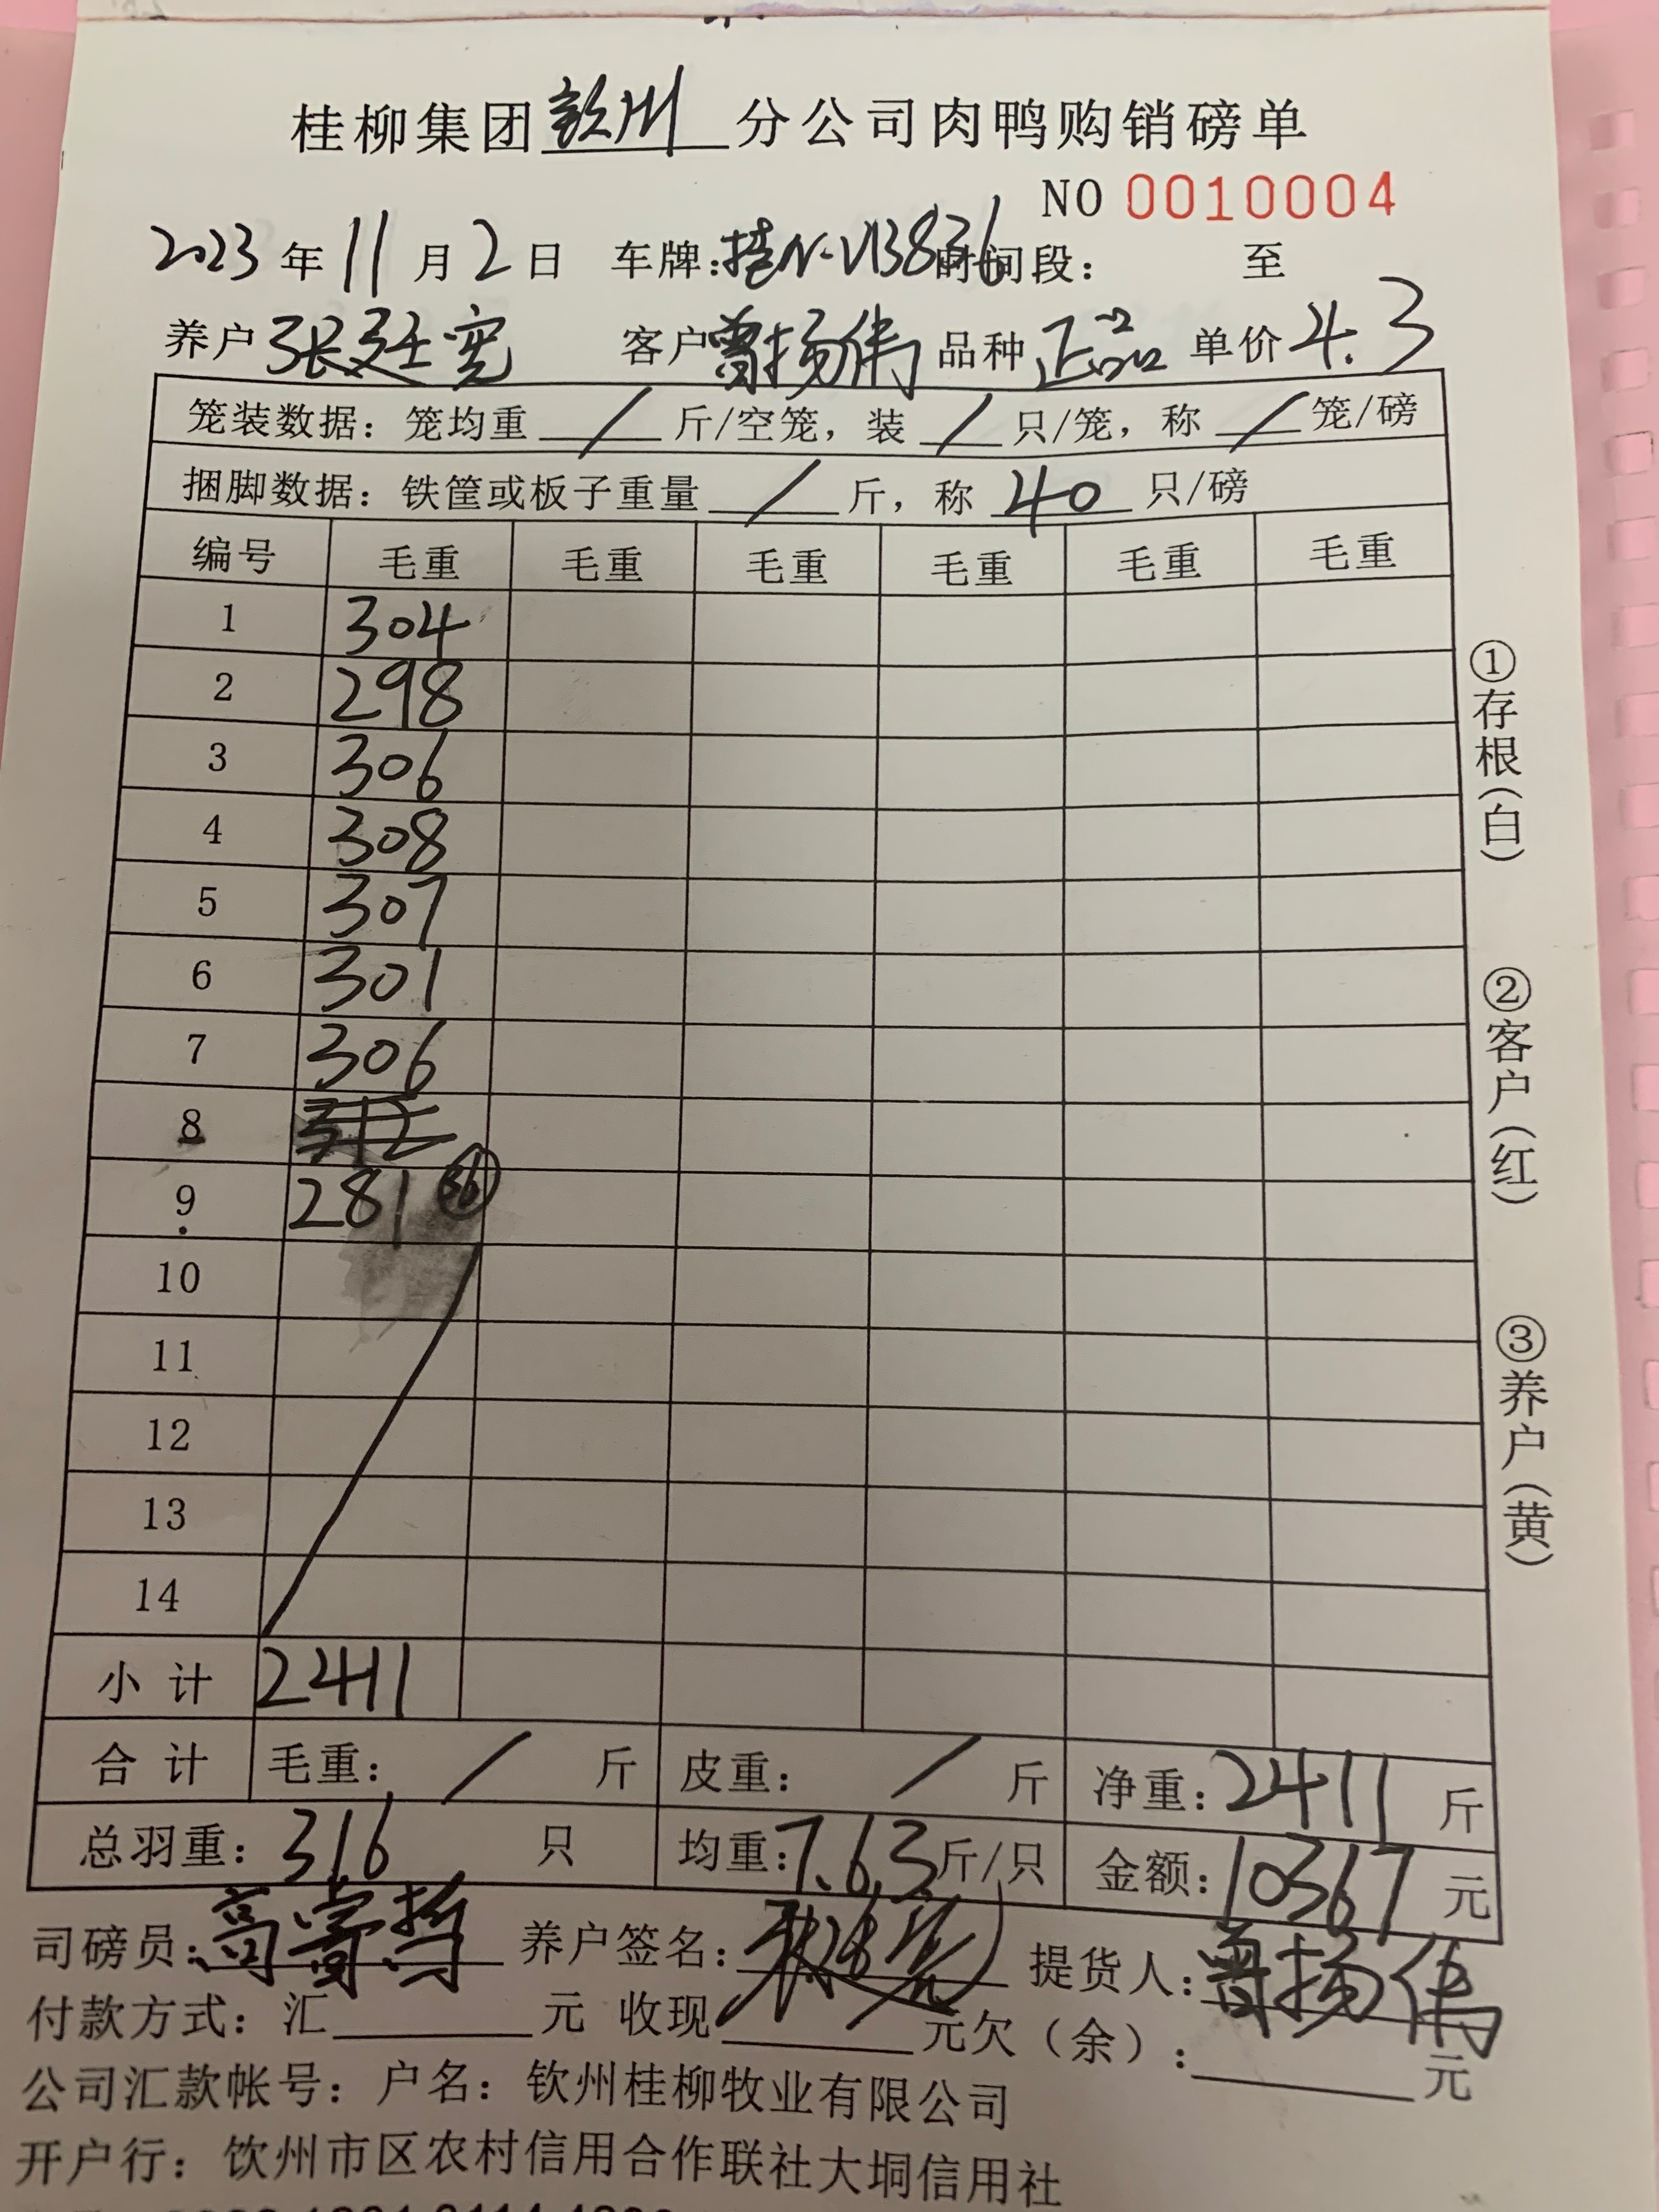 桂柳集团钦州分公司肉鸭购销磅单
NO 0010004
2023年11月2日 车牌:桂N-VB836 时间段: 至
养户张廷宽 客户曾扬伟 品种正品 单价4.3
笼装数据:笼均重/斤/空笼,装/只/笼,称/笼/磅
捆脚数据:铁筐或板子重量/斤,称40只/磅
编号 毛重 毛重 毛重 毛重 毛重 毛重
1 304
2 298
3 306
4 308
5 307
6 301
7 306
8
9 281 36
10
11
12
13
14
小计 2411
合计 毛重:/斤 皮重:/斤 净重:2411斤
总羽重:316只 均重:7.63斤/只 金额:10367元
司磅员: 养户签名: 提货人:曾扬伟
付款方式:汇 元 收现 元欠(余): 元
公司汇款帐号:户名:钦州桂柳牧业有限公司
开户行:钦州市区农村信用合作联社大垌信用社
①存根(白) ②客户(红) ③养户(黄)